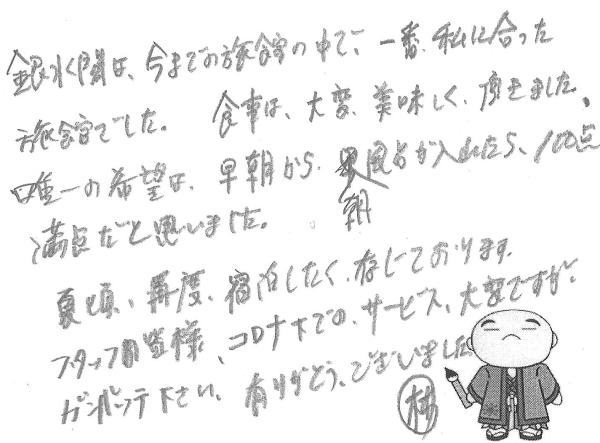 銀水閣は、今までの旅館の中で、一番、私に合った
旅館でした。食事は、大変、美味しく、頂きました。
唯一の希望は、早朝から、朝風呂が入れたら、100点
満点だと思いました。
夏頃、再度、宿泊したく、存じております。
スタッフ皆様、コロナ下での、サービス、大変ですが、
ガンバッテ下さい。有りがとう、ございました
林